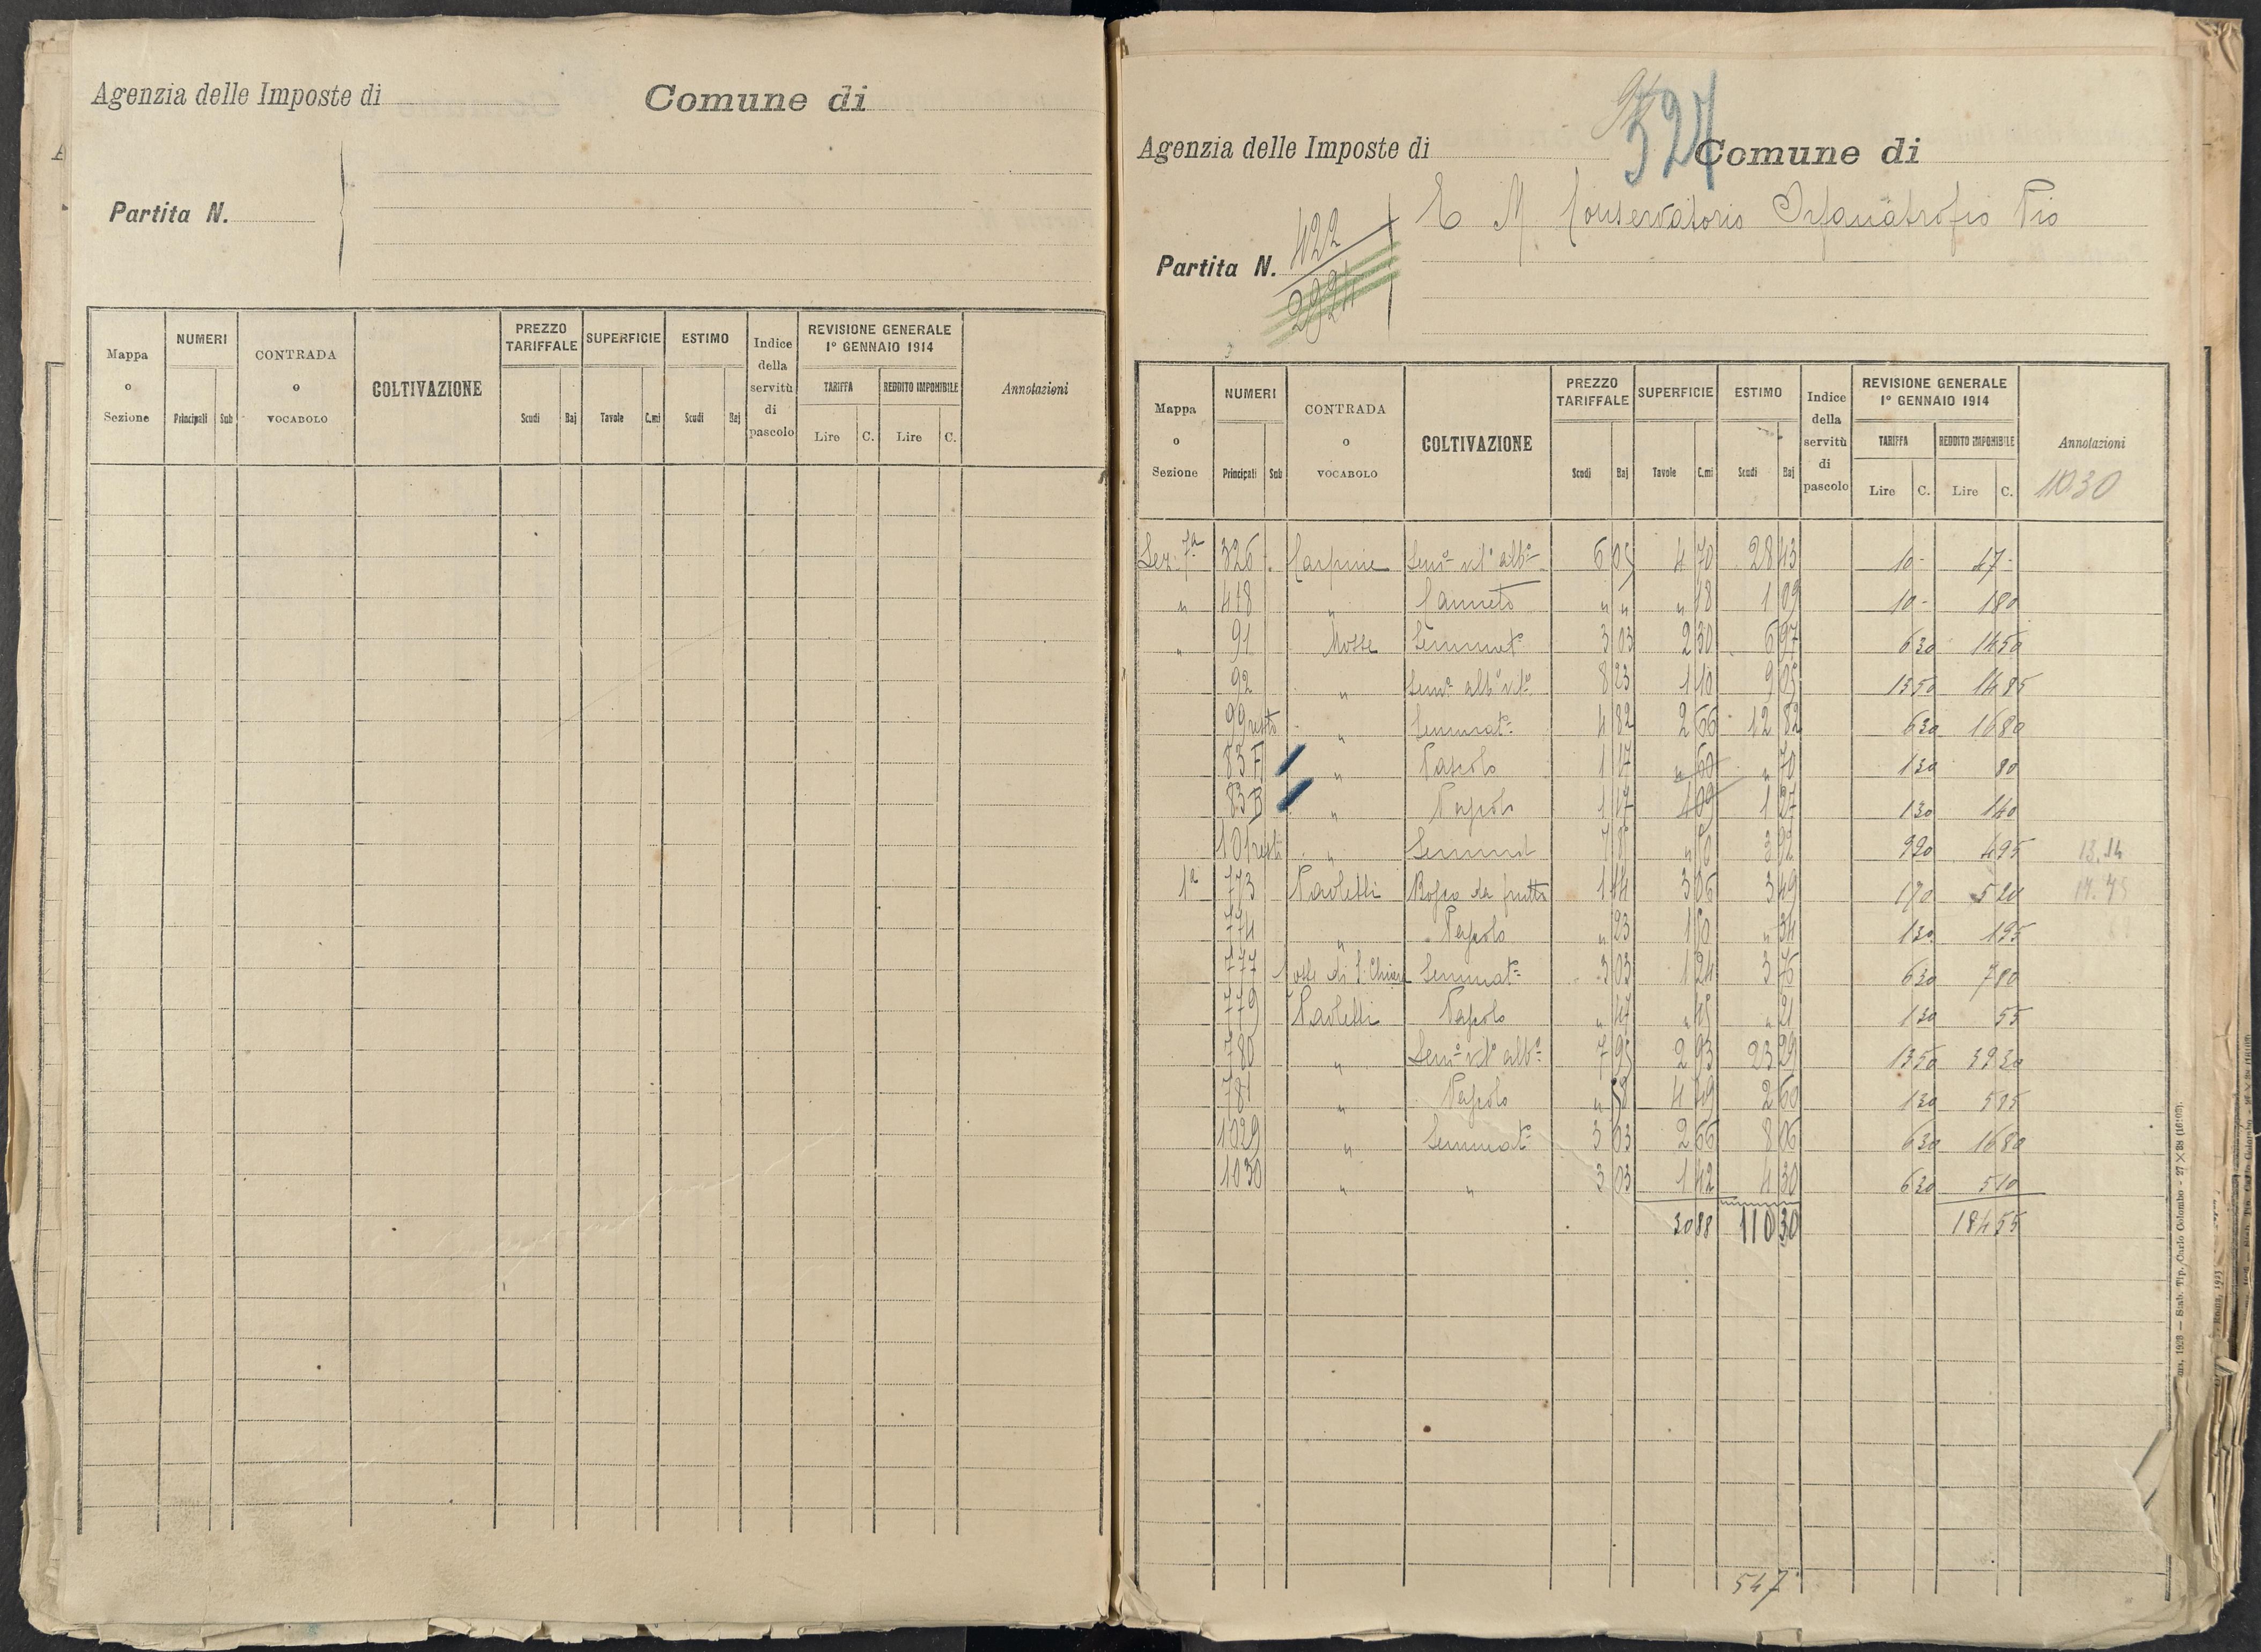 Agenzia delle Imposte di
Comune di
Partita N.
Mappa o Sezione
NUMERI
Principali
Sub
CONTRADA o VOCABOLO
COLTIVAZIONE
PREZZO TARIFFALE
Scudi
Baj
SUPERFICIE
Tavole
C.mi
ESTIMO
Scudi
Baj
Indice della servitù di pascolo
REVISIONE GENERALE 1º GENNAIO 1914
TARIFFA
REDDITO IMPONIBILE
Lire C. Lire C.
Annotazioni
527
Agenzia delle Imposte di
Comune di
Partita N. 422
2921
E M Conservatorio Orfanatrofio Pio
Mappa o Sezione
NUMERI
Principali
Sub
CONTRADA o VOCABOLO
COLTIVAZIONE
PREZZO TARIFFALE
Scudi
Baj
SUPERFICIE
Tavole
C.mi
ESTIMO
Scudi
Baj
Indice della servitù di pascolo
REVISIONE GENERALE 1º GENNAIO 1914
TARIFFA
REDDITO IMPONIBILE
Lire C. Lire C.
Annotazioni
110.30
Sez. 7ª 326 Carpine Semº vitº albº 6 05 4 70 28 43 10 - 47 -
" 418 " Canneto " " " 18 1 09 10 - 1 80
" 91 Mosse Seminatº 3 03 2 30 6 97 6 30 14 50
92 " Semº albº vitº 8 23 1 10 9 05 13 50 14 85
99 resto " Seminatº 4 82 2 66 12 82 6 30 16 80
83 A " Pascolo 1 17 " 60 " 70 1 30 80
83 B " Pascolo 1 17 1 09 1 27 1 30 1 40
101 resto " Seminat 7 8 " 50 3 92 9 90 4 95 13.14
1ª 773 Paoletti Bosco da frutto 1 14 3 06 3 49 1 70 5 20 17.75
774 " Pascolo " 23 1 50 " 34 1 30 1 95
777 Mosse di S. Chiara Seminatº 3 03 1 24 3 76 6 30 7 80
779 Paoletti Pascolo " 47 " 45 " 21 1 30 55
780 " Semº vitº albº 7 95 2 93 23 29 13 50 39 30
781 " Pascolo " 58 4 49 2 60 1 30 5 85
1029 " Seminatº 3 03 2 66 8 06 6 30 16 80
1030 " " 3 03 1 42 4 30 6 30
30 88 110 30 184 55
547